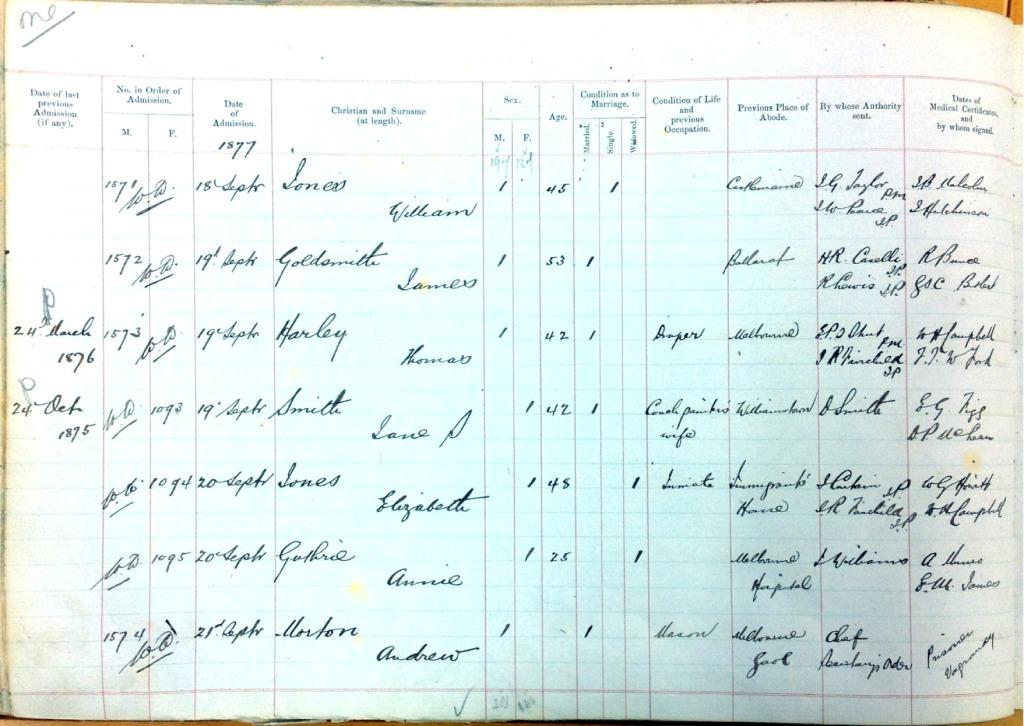 Date of last previous Admission (if any).
No. in Order of Admission.
M. F.
Date of Admission.
Christian and Surname (at length).
Sex.
M. F.
Age.
Condition as to Marriage.
Married. Single. Widowed.
Condition of Life and previous Occupation.
Previous Place of Abode.
By whose Authority sent.
Dates of Medical Certificates, and by whom signed.
1877
1571 18 Septr Jones 1 45 1 Castlemaine J.G. Taylor PM
William J.P. J Hutchinson
1572 19 Septr Goldsmith 1 53 1 Ballarat HR. Caselli J.P. R Bunce
James R Lewis J.P.
24 March 1573 19 Septr Harley 1 42 1 Draper Melbourne PM W H Campbell
1876 Thomas J R Fairchild JP
24 Oct 1093 19 Septr Smith 1 42 1 Coach painter's Williamstown D Smith
1875 Jane S wife
1094 20 Septr Jones 1 48 1 Inmate Immigrants' J.P. W G Howitt
Elizabeth Home J.R. Fairchild J.P. W. H Campbell
1095 20 Septr Guthrie 1 25 1 Melbourne J Williams A Munro
Annie Hospital E. M. James
1574 21st Septr Morton 1 1 Mason Melbourne Chief Prisoner
Andrew Gaol Secretary's Order Vagrancy